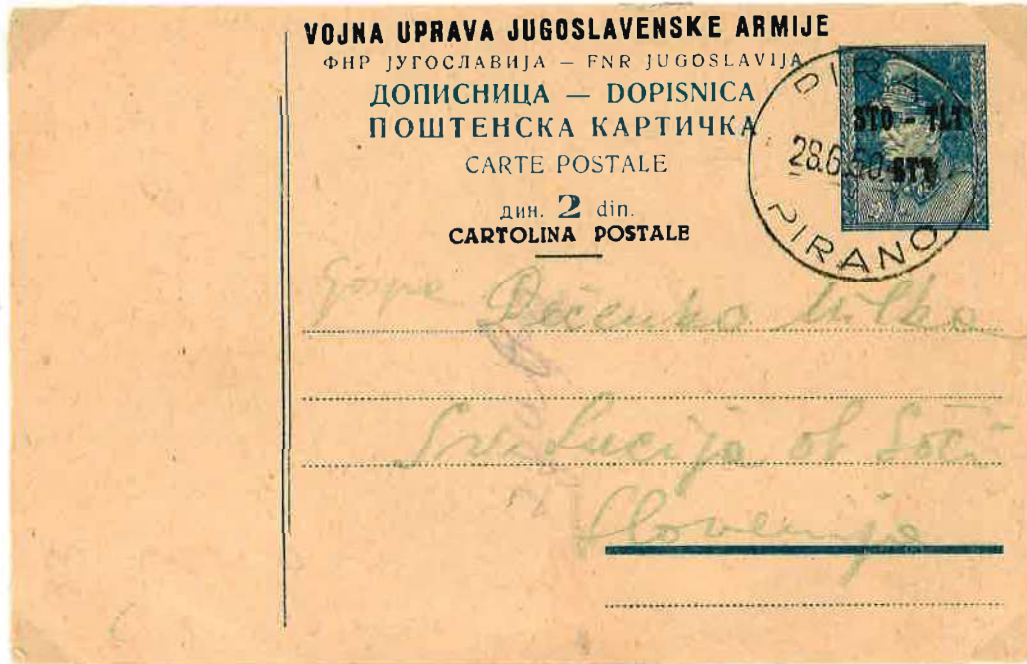 VOJNA UPRAVA JUGOSLAVENSKE ARMIJE
ФНР ЈУГОСЛАВИЈА — FNR JUGOSLAVIJA
ДОПИСНИЦА — DOPISNICA
ПОШТЕНСКА КАРТИЧКА
CARTE POSTALE
дин. 2 din.
CARTOLINA POSTALE
STO - TLT
STT
PIRAN
28.6.50
PIRANO
Gospa Pečenko Milka
Sv. Lucija ob Soči
Slovenija